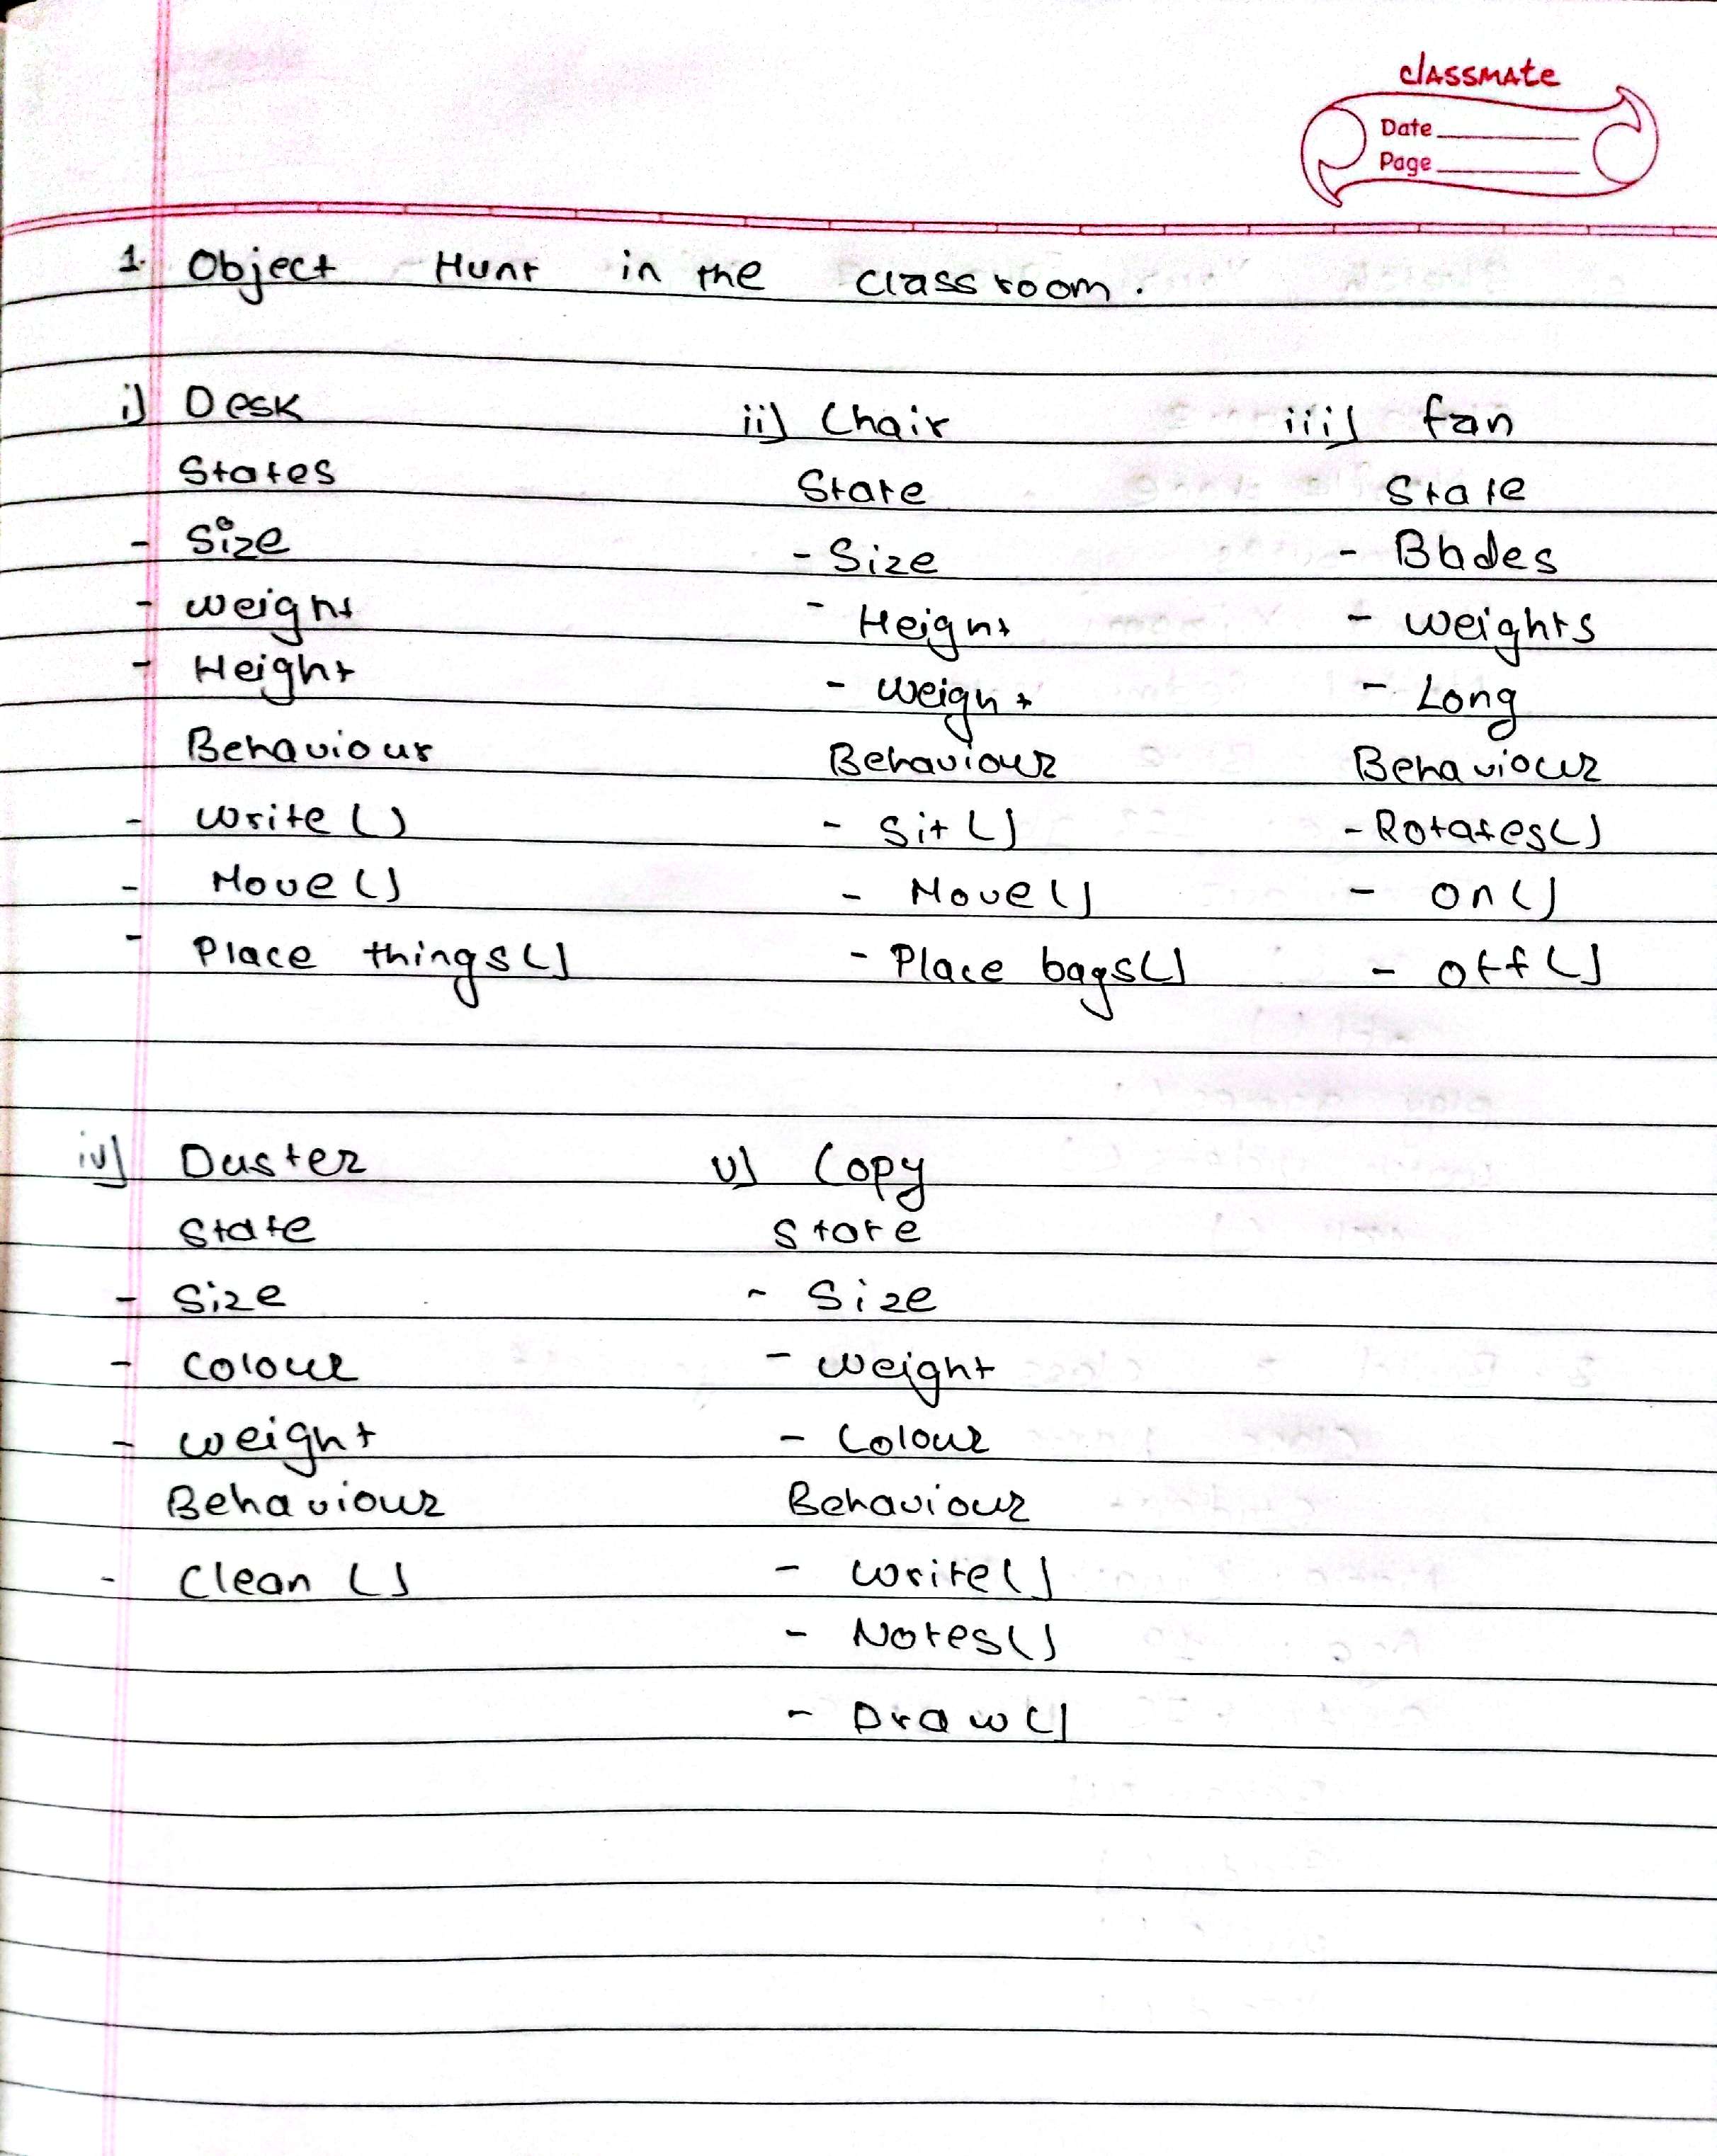 classmate
Date
Page
1. Object Hunt in the classroom.
i) Desk
States
- Size
- weight
- Height
Behaviour
- write ()
- Move ()
- Place things()
ii) Chair
State
- Size
- Height
- weight
Behaviour
- Sit ()
- Move ()
- Place bags()
iii) fan
State
- Blades
- weights
- Long
Behaviour
- Rotates()
- on ()
- off ()
iv) Duster
State
- Size
- colour
- weight
Behaviour
- Clean ()
v) Copy
State
- Size
- weight
- Colour
Behaviour
- write()
- Notes()
- Draw()